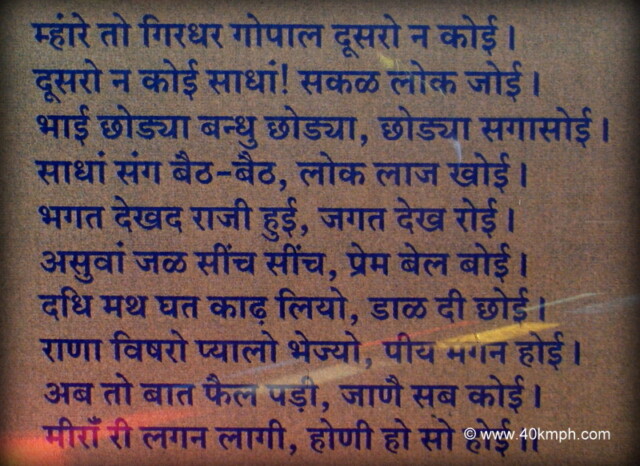 म्हांरे तो गिरधर गोपाल दूसरो न कोई।
दूसरो न कोई साधां! सकळ लोक जोई।
भाई छोड्या बन्धु छोड्या, छोड्या सगासोई।
साधां संग बैठ-बैठ, लोक लाज खोई।
भगत देखद राजी हुई, जगत देख रोई।
असुवां जळ सींच सींच, प्रेम बेल बोई।
दधि मथ घत काढ़ लियो, डाळ दी छोई।
राणा विषरो प्यालो भेज्यो, पीय मगन होई।
अब तो बात फैल पड़ी, जाणै सब कोई।
मीराँ री लगन लागी, होणी हो सो होई॥
© www.40kmph.com